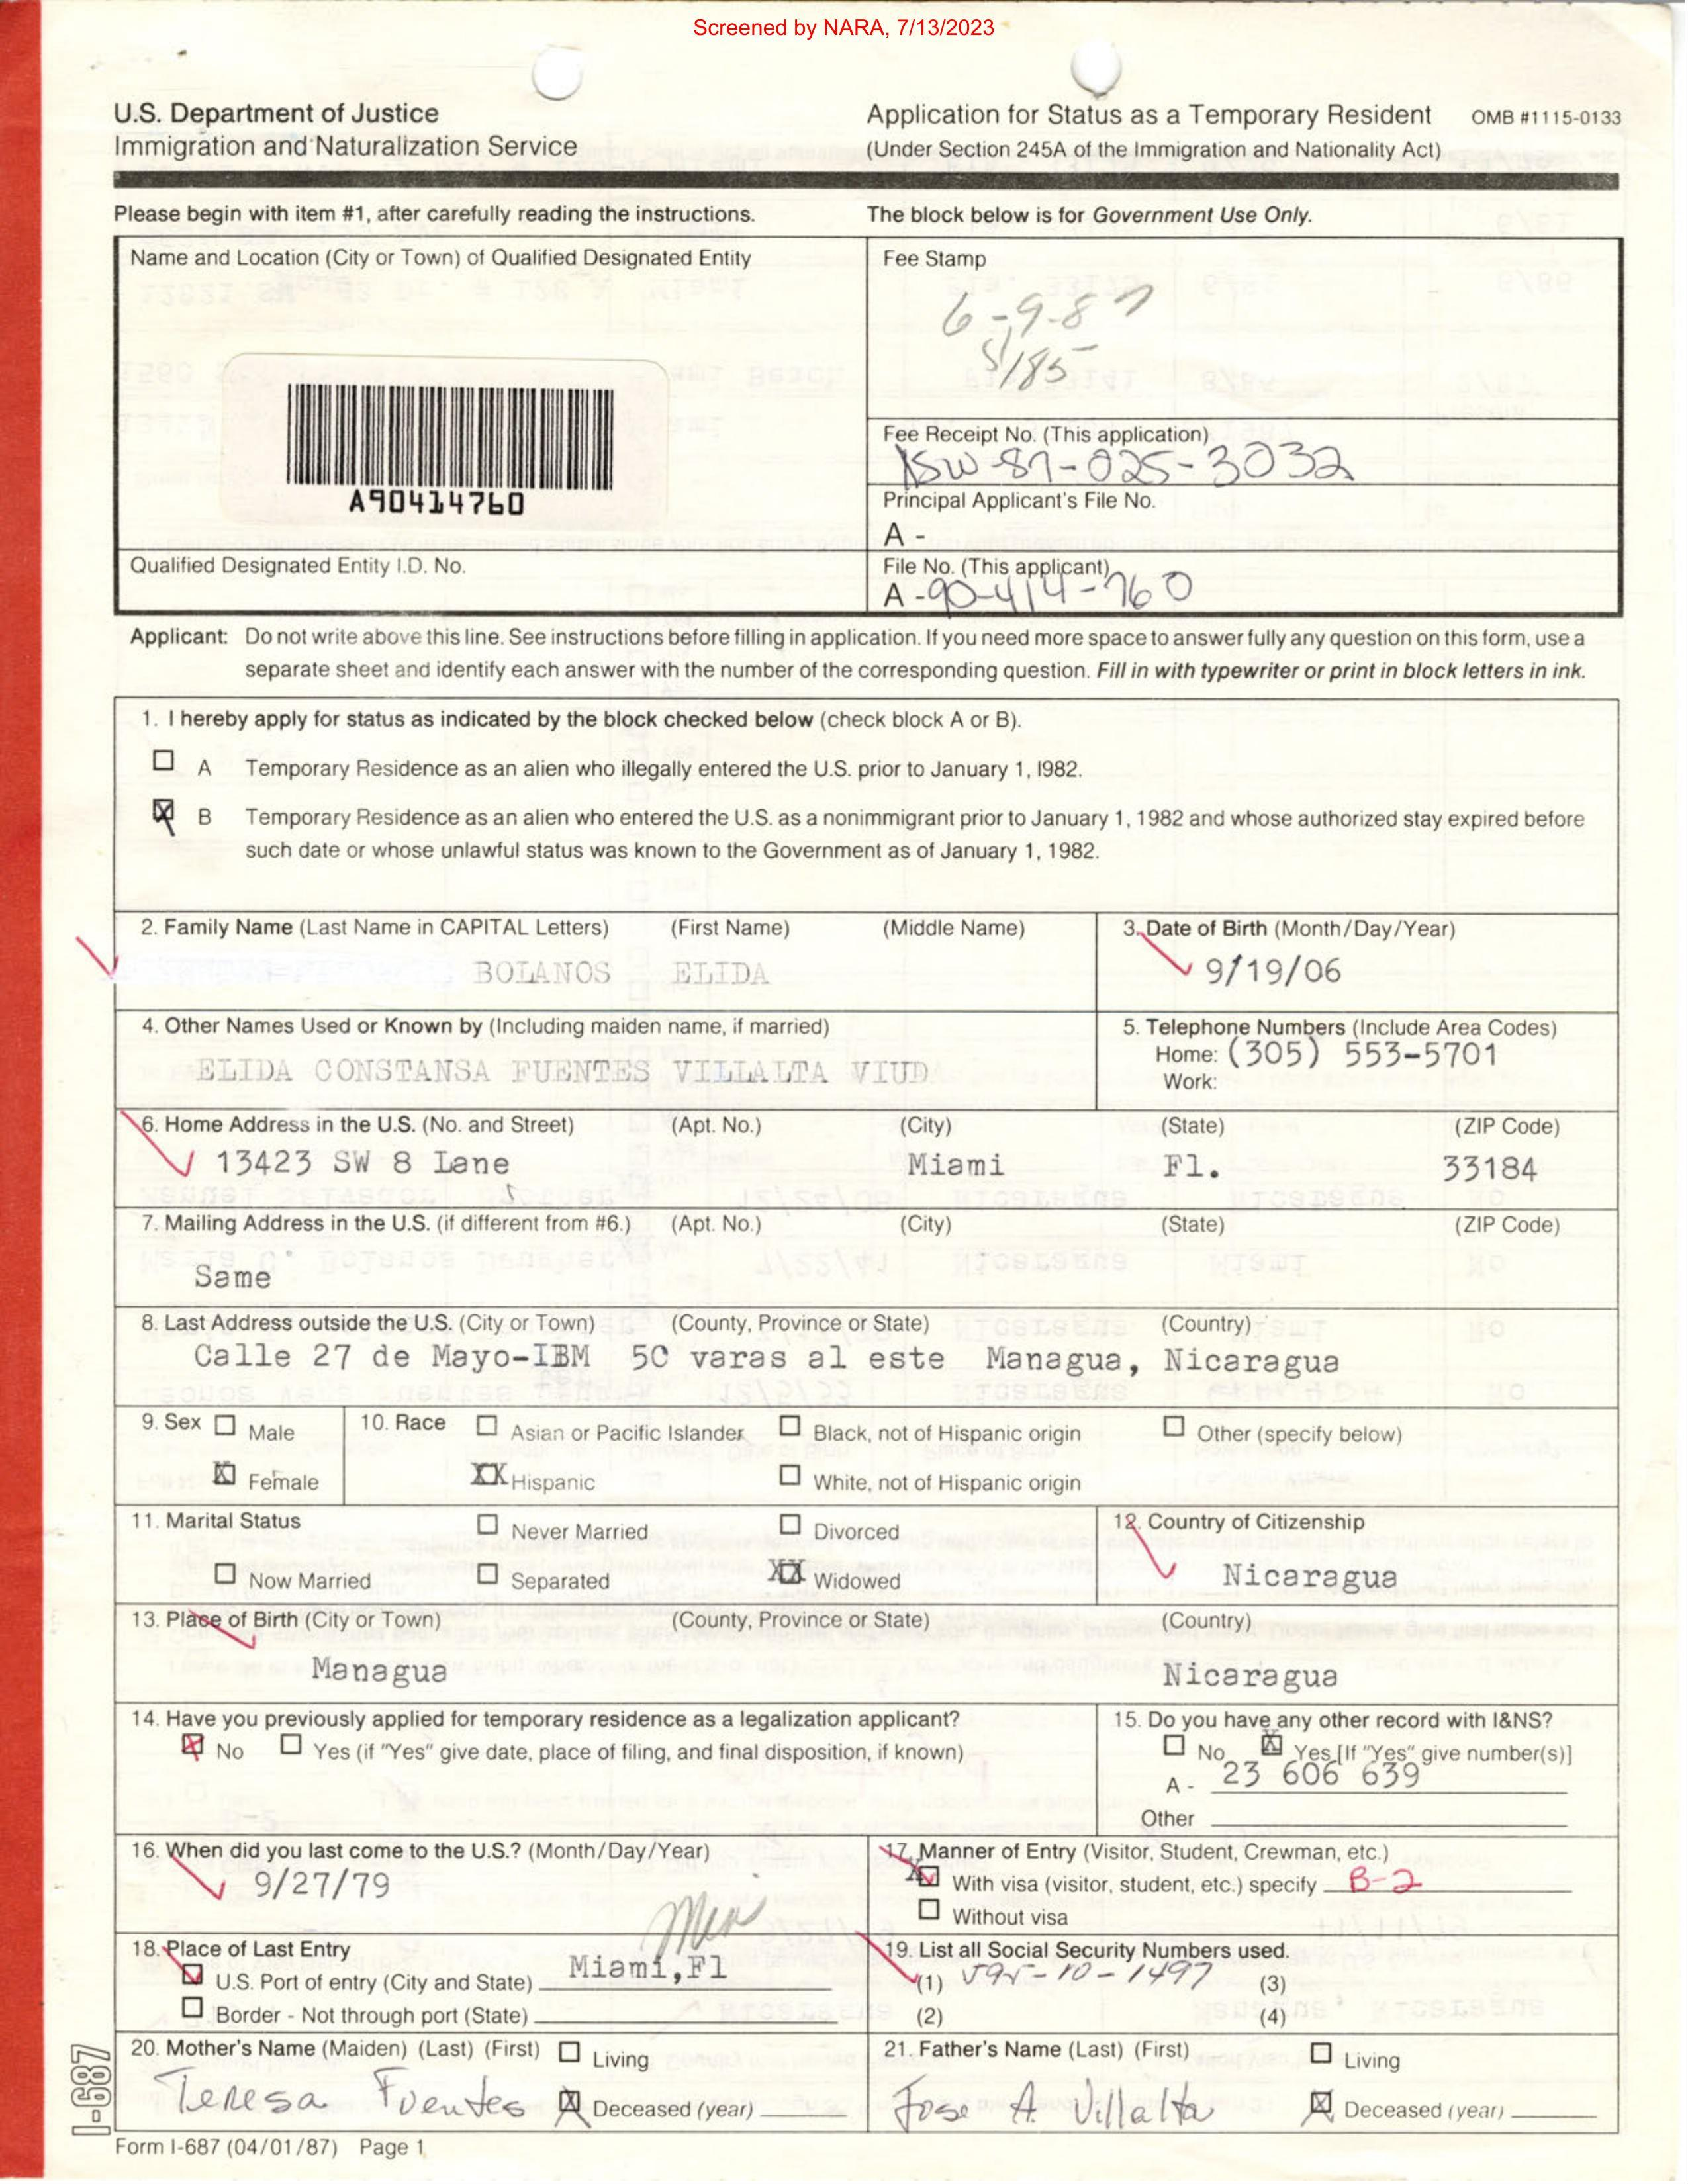 Screened by NARA, 7/13/2023
U.S. Department of Justice
Immigration and Naturalization Service
Application for Status as a Temporary Resident OMB #1115-0133
(Under Section 245A of the Immigration and Nationality Act)
Please begin with item #1, after carefully reading the instructions.
The block below is for Government Use Only.
Name and Location (City or Town) of Qualified Designated Entity
A90414760
Qualified Designated Entity I.D. No.
Fee Stamp
6-9-87
$185
Fee Receipt No. (This application)
-87-025-3032
Principal Applicant's File No.
A -
File No. (This applicant)
A -90-414-760
Applicant: Do not write above this line. See instructions before filling in application. If you need more space to answer fully any question on this form, use a
separate sheet and identify each answer with the number of the corresponding question. Fill in with typewriter or print in block letters in ink.
1. I hereby apply for status as indicated by the block checked below (check block A or B).
A Temporary Residence as an alien who illegally entered the U.S. prior to January 1, l982.
B Temporary Residence as an alien who entered the U.S. as a nonimmigrant prior to January 1, 1982 and whose authorized stay expired before
such date or whose unlawful status was known to the Government as of January 1, 1982.
2. Family Name (Last Name in CAPITAL Letters) (First Name) (Middle Name)
BOLANOS ELIDA
3. Date of Birth (Month/Day/Year)
9/19/06
4. Other Names Used or Known by (Including maiden name, if married)
ELIDA CONSTANSA FUENTES VILLALTA VIUD
5. Telephone Numbers (Include Area Codes)
Home: (305) 553-5701
Work:
6. Home Address in the U.S. (No. and Street) (Apt. No.) (City) (State) (ZIP Code)
13423 SW 8 Lane Miami Fl. 33184
7. Mailing Address in the U.S. (if different from #6.) (Apt. No.) (City) (State) (ZIP Code)
Same
8. Last Address outside the U.S. (City or Town) (County, Province or State) (Country)
Calle 27 de Mayo-IBM 50 varas al este Managua, Nicaragua
9. Sex Male
Female
10. Race Asian or Pacific Islander Black, not of Hispanic origin Other (specify below)
Hispanic White, not of Hispanic origin
11. Marital Status Never Married Divorced
Now Married Separated Widowed
12. Country of Citizenship
Nicaragua
13. Place of Birth (City or Town) (County, Province or State) (Country)
Managua Nicaragua
14. Have you previously applied for temporary residence as a legalization applicant?
No Yes (if "Yes" give date, place of filing, and final disposition, if known)
15. Do you have any other record with I&NS?
No Yes [If "Yes" give number(s)]
A - 23 606 639
Other
16. When did you last come to the U.S.? (Month/Day/Year)
9/27/79
17. Manner of Entry (Visitor, Student, Crewman, etc.)
With visa (visitor, student, etc.) specify B-2
Without visa
18. Place of Last Entry
U.S. Port of entry (City and State) Miami, Fl
Border - Not through port (State)
19. List all Social Security Numbers used.
(1) 595-10-1497 (3)
(2) (4)
20. Mother's Name (Maiden) (Last) (First) Living
Teresa Fuentes Deceased (year)
21. Father's Name (Last) (First) Living
Jose A. Villalta Deceased (year)
I-687
Form I-687 (04/01/87) Page 1